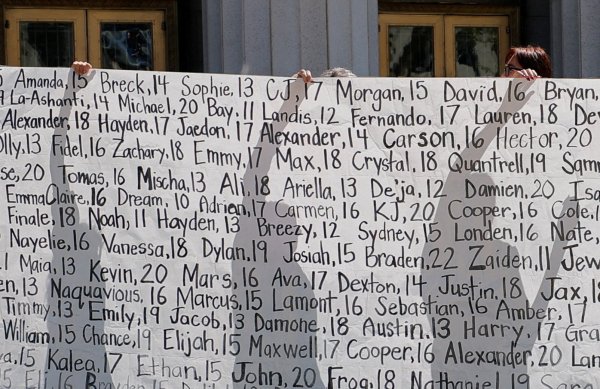 Amanda, 15 Breck, 14 Sophie, 13 CJ, 17 Morgan, 15 David, 16 Bryan,
La-Ashanti, 14 Michael, 20 Bay, 11 Landis, 12 Fernando, 17 Lauren, 18
Alexander, 18 Hayden, 17 Jaedon, 17 Alexander, 14 Carson, 16 Hector, 20
13 Fidel, 16 Zachary, 18 Emmy, 17 Max, 18 Crystal, 18 Quantrell, 19
20 Tomas, 16 Mischa, 13 Ali, 18 Ariella, 13 De'ja, 12 Damien, 20
EmmaClaire, 16 Dream, 10 Adrien, 17 Carmen, 16 KJ, 20 Cooper, 16 Cole,
Finale, 18 Noah, 11 Hayden, 13 Breezy, 12 Sydney, 15 Londen, 16 Nate,
Nayelie, 16 Vanessa, 18 Dylan, 19 Josiah, 15 Braden, 22 Zaiden, 11
Maia, 13 Kevin, 20 Mars, 16 Ava, 17 Dexton, 14 Justin, 18 Jax, 18
13 Naquavious, 16 Marcus, 15 Lamont, 16 Sebastian, 16 Amber, 17
Timmy, 13 Emily, 19 Jacob, 13 Damone, 18 Austin, 13 Harry, 17
William, 15 Chance, 19 Elijah, 15 Maxwell, 17 Cooper, 16 Alexander, 20
15 Kalea, 17 Ethan, 15 John, 20 Frog, 18 Nathaniel